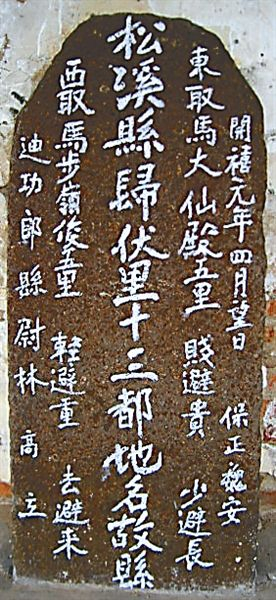 開禧元年四月望日 保正魏安
東取馬大仙殿五里 賤避貴 少避長
松溪縣歸伏里十三都地名故縣
西取馬步嶺後五里 輕避重 去避来
迪功郎縣尉林高立